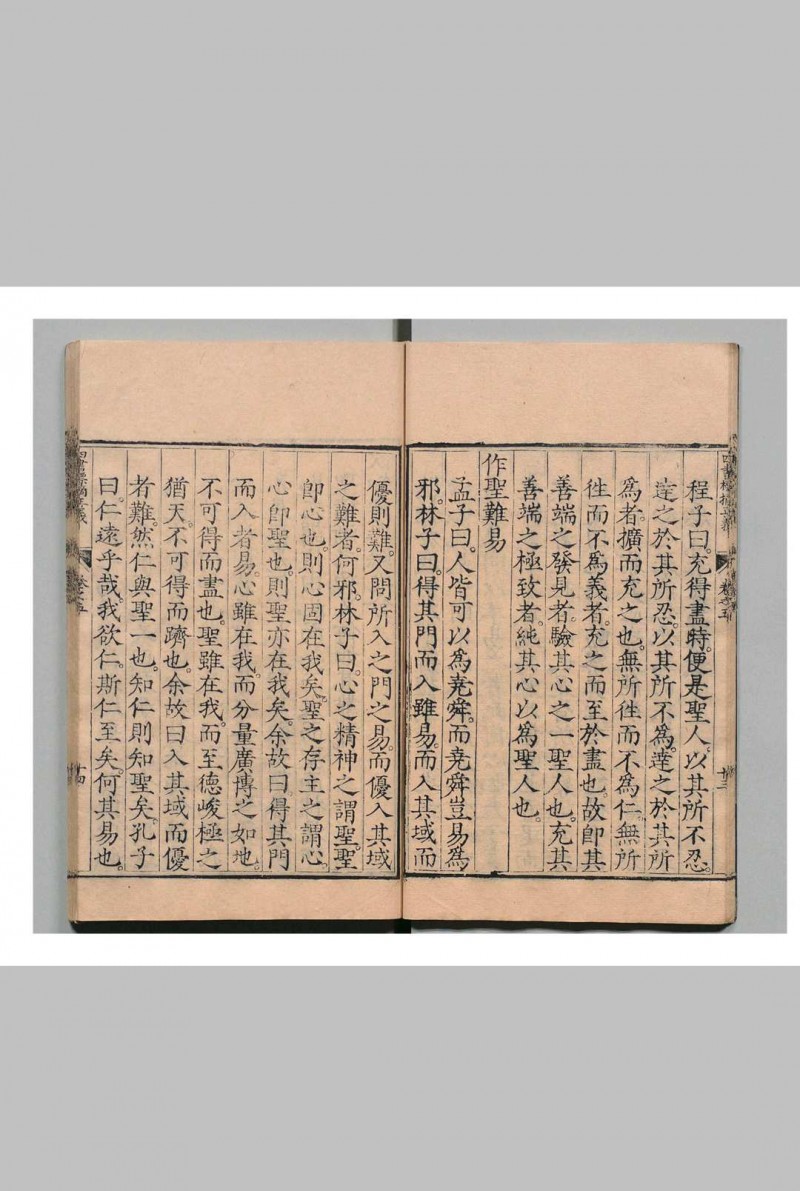 程子曰。充得盡時。便是聖人。以其所不忍。
達之於其所忍。以其所不為。達之於其所
為者。擴而充之也。無所徃而不為仁。無所
徃而不為義者。充之而至於盡也。故即其
善端之發見者。驗其心之一聖人也。充其
善端之極致者。純其心以為聖人也。
作聖難易
孟子曰。人皆可以為堯舜。而堯舜豈易為
邪。林子曰。得其門而入雖易。而入其域而
卷之五
廿三
優則難。又問所入之門之易。而優入其域
之難者。何邪。林子曰。心之精神之謂聖。聖
即心也。則心固在我矣。聖之存主之謂心。
心即聖也。則聖亦在我矣。余故曰得其門
而入者易。心雖在我。而分量廣愽之如地。
不可得而盡也。聖雖在我。而至德峻極之
猶天。不可得而躋也。余故曰入其域而優
者難。然仁與聖一也。知仁則知聖矣。孔子
曰。仁遠乎哉。我欲仁。斯仁至矣。何其易也。
卷之五
廿四